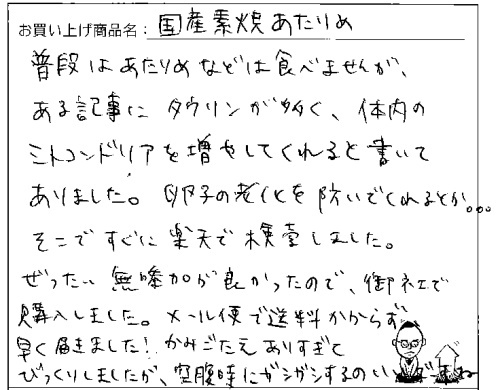 お買い上げ商品名： 国産素焼あたりめ
普段はあたりめなどは食べませんが、
ある記事にタウリンが多く、体内の
ミトコンドリアを増やしてくれると書いて
ありました。卵子の老化を防いでくれるとか...
そこですぐに楽天で検索しました。
ぜったい無添加が良かったので、御社で
購入しました。メール便で送料かからず
早く届きました！かみごたえありすぎて
びっくりしましたが、空腹時にガシガシするのいいですね